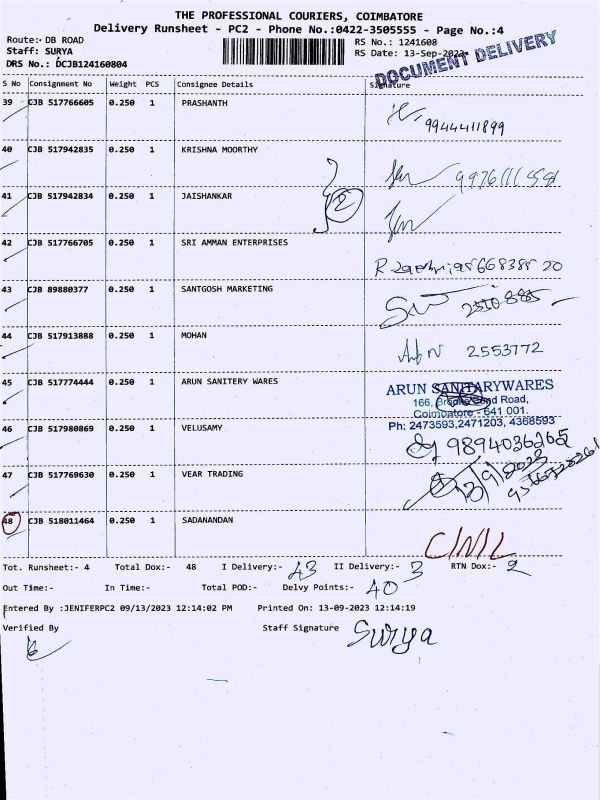 THE PROFESSIONAL COURIERS, COIMBATORE
Delivery Runsheet - PC2 - Phone No.:0422-3505555 - Page No.:4
Route:- DB ROAD
RS No.: 1241608
Staff: SURYA
RS Date: 13-Sep-2023
DRS No.: DCJB124160804
DOCUMENT DELIVERY
S No Consignment No Weight PCS Consignee Details Signature
39 CJB 517766605 0.250 1 PRASHANTH
9944411899
40 CJB 517942835 0.250 1 KRISHNA MOORTHY
41 CJB 517942834 0.250 1 JAISHANKAR
2
42 CJB 517766705 0.250 1 SRI AMMAN ENTERPRISES
43 CJB 89880377 0.250 1 SANTGOSH MARKETING
44 CJB 517913888 0.250 1 MOHAN
2553772
45 CJB 517774444 0.250 1 ARUN SANITERY WARES
ARUN SANITARYWARES
166, Road,
Coimbatore - 641 001.
Ph: 2473593,2471203, 4368593
46 CJB 517980869 0.250 1 VELUSAMY
9894036265
47 CJB 517769630 0.250 1 VEAR TRADING
13/9/2023
48 CJB 518011464 0.250 1 SADANANDAN
C/N/L
Tot. Runsheet:- 4 Total Dox:- 48 I Delivery:- 43 II Delivery:- 3 RTN Dox:- 2
Out Time:- In Time:- Total POD:- Delvy Points:- 40
Entered By :JENIFERPC2 09/13/2023 12:14:02 PM Printed On: 13-09-2023 12:14:19
Verified By Staff Signature Surya